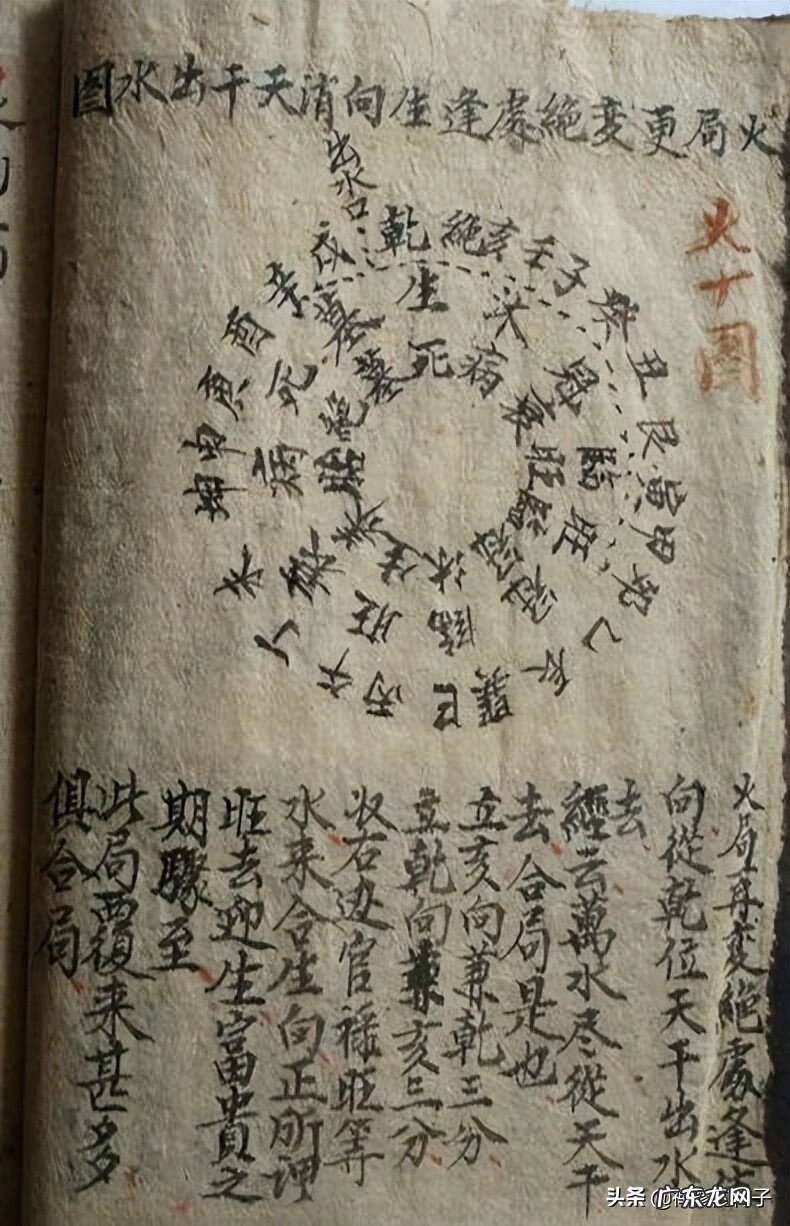 火局更變絕處逢生向消天干出水圖
火十圖
出水口
乾絕亥壬子癸丑艮寅甲卯乙辰巽巳丙午丁未坤申庚酉辛戌
生沐臨旺冠臨旺衰病死墓
死病衰旺臨冠沐生养胎絕墓
火局再變絕處逢生
向從乾位天干出水
去
經云萬水尽從天干
去合局是也
立亥向兼乾三分
立乾向兼亥三分
收右边官祿旺等
水来合生向正所谓
旺去迎生富貴之
期驟至
此局西復来甚多
俱合局
头条 @广东龙网子